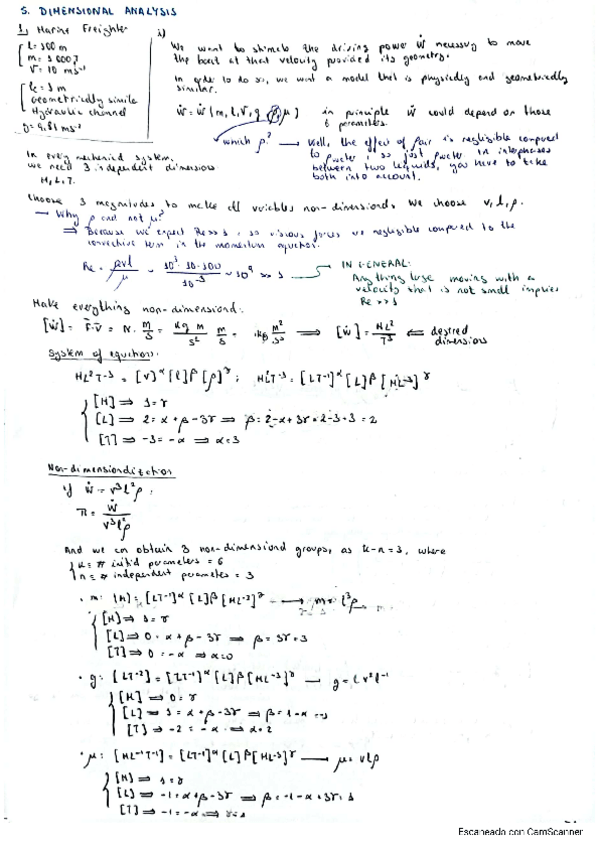 5. DIMENSIONAL ANALYSIS
1, Marine Freighter
L = 100 m
m = 3 000 T
V = 10 ms⁻¹
Geometrically similar
Hydraulic channel
g = 9.81 ms⁻²
i)
We want to estimate the driving power Ẇ necessary to move
the boat at that velocity provided its geometry.
In order to do so, we want a model that is physically and geometrically
similar.
Ẇ = Ẇ (m, L, V, g, ρ, μ) in principle Ẇ could depend on those
6 parameters.
which ρ? Well, the effect of ρair is negligible compared
to ρwater, so just ρwater. In interphases
between two liquids, you have to take
both into account.
In every mechanical system,
we need 3 independent dimensions
M, L, T.
Choose 3 magnitudes to make all variables non-dimensional. We choose v, l, ρ.
→ Why ρ and not μ?
⇒ Because we expect Re >> 1, so viscous forces are negligible compared to the
convective term in the momentum equation.
Re = ρvl/μ ~ 10³·10·100/10⁻³ ~ 10⁹ >> 1
IN GENERAL:
Anything large moving with a
velocity that is not small implies
Re >> 1
Make everything non-dimensional:
[Ẇ] = F·v = N · m/s = kg m/s² m/s = kg m²/s³ ⟹ [Ẇ] = ML²/T³ ⇐ desired
dimensions
System of equations:
ML²T⁻³ = [v]^α [l]^β [ρ]^γ ; ML²T⁻³ = [LT⁻¹]^α [L]^β [ML⁻³]^γ
[M] ⇒ 1 = γ
[L] ⇒ 2 = α + β - 3γ ⇒ β = 2 - α + 3γ = 2 - 3 + 3 = 2
[T] ⇒ -3 = -α ⇒ α = 3
Non-dimensionalization
if Ẇ = v³l²ρ ;
π = Ẇ/v³l²ρ
And we can obtain 3 non-dimensional groups, as k-n = 3, where
k = # initial parameters = 6
n = # independent parameters = 3
· m: [M] = [LT⁻¹]^α [L]^β [ML⁻³]^γ → m = l³ρ
[M] ⇒ 1 = γ
[L] ⇒ 0 = α + β - 3γ ⇒ β = 3γ = 3
[T] ⇒ 0 = -α ⇒ α = 0
· g: [LT⁻²] = [LT⁻¹]^α [L]^β [ML⁻³]^γ → g = v²l⁻¹
[M] ⇒ 0 = γ
[L] ⇒ 1 = α + β - 3γ ⇒ β = 1 - α = -1
[T] ⇒ -2 = -α ⇒ α = 2
· μ: [ML⁻¹T⁻¹] = [LT⁻¹]^α [L]^β [ML⁻³]^γ → μ = vlρ
[M] ⇒ 1 = γ
[L] ⇒ -1 = α + β - 3γ ⇒ β = -1 - α + 3γ = 1
[T] ⇒ -1 = -α ⇒
Escaneado con CamScanner